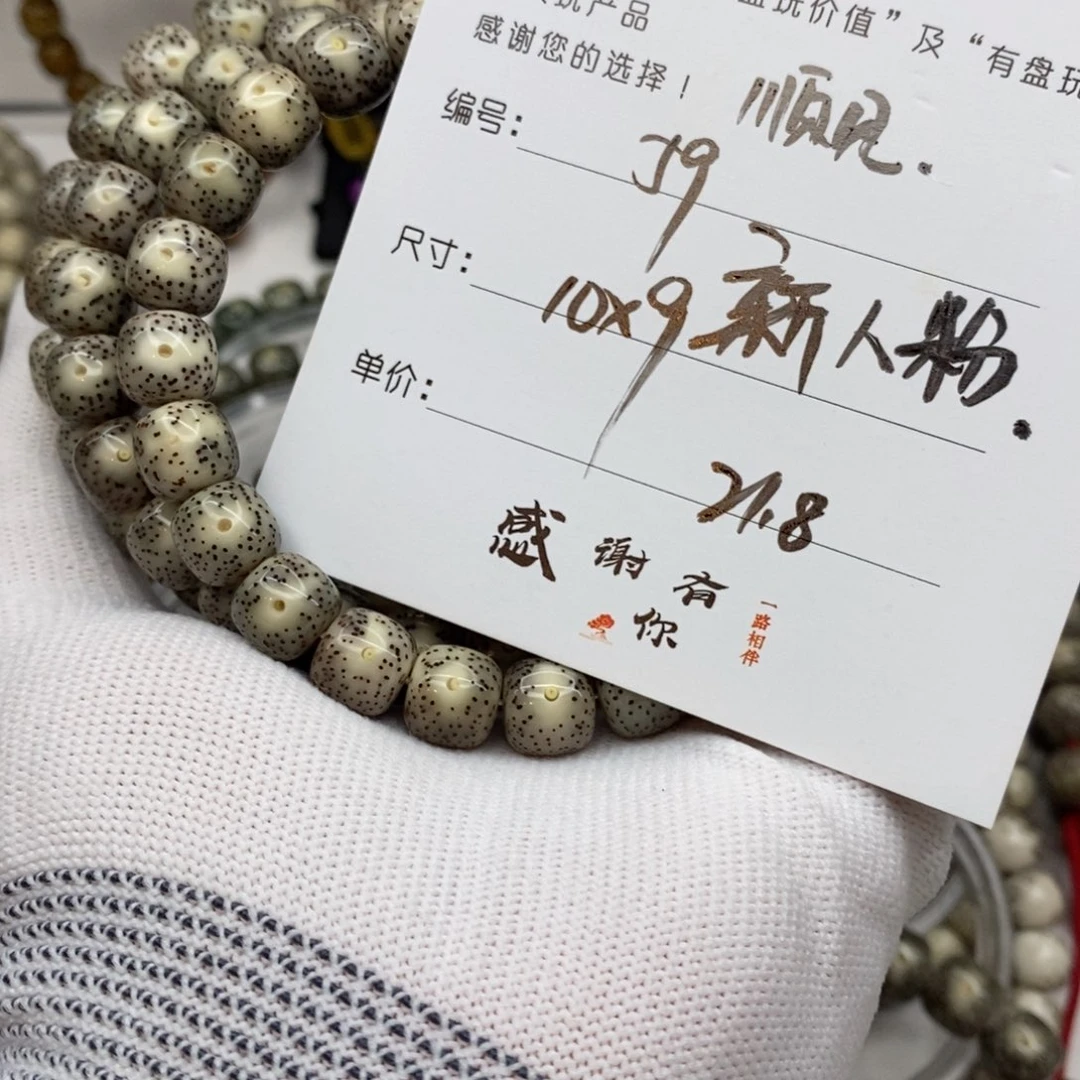 玩产品 盘玩价值”及“有盘玩
感谢您的选择！
顺尺.
编号： J9
尺寸： 10x9 新人粉.
单价： 21.8
感谢有你
一路相伴